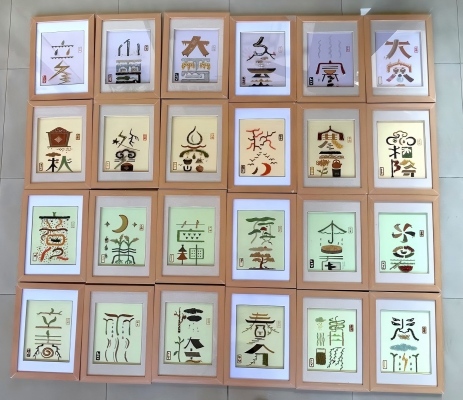 立冬
小雪
大雪
冬至
小寒
大寒
立秋
处暑
白露
秋分
寒露
霜降
立夏
小满
芒种
夏至
小暑
大暑
立春
雨水
惊蛰
春分
清明
谷雨